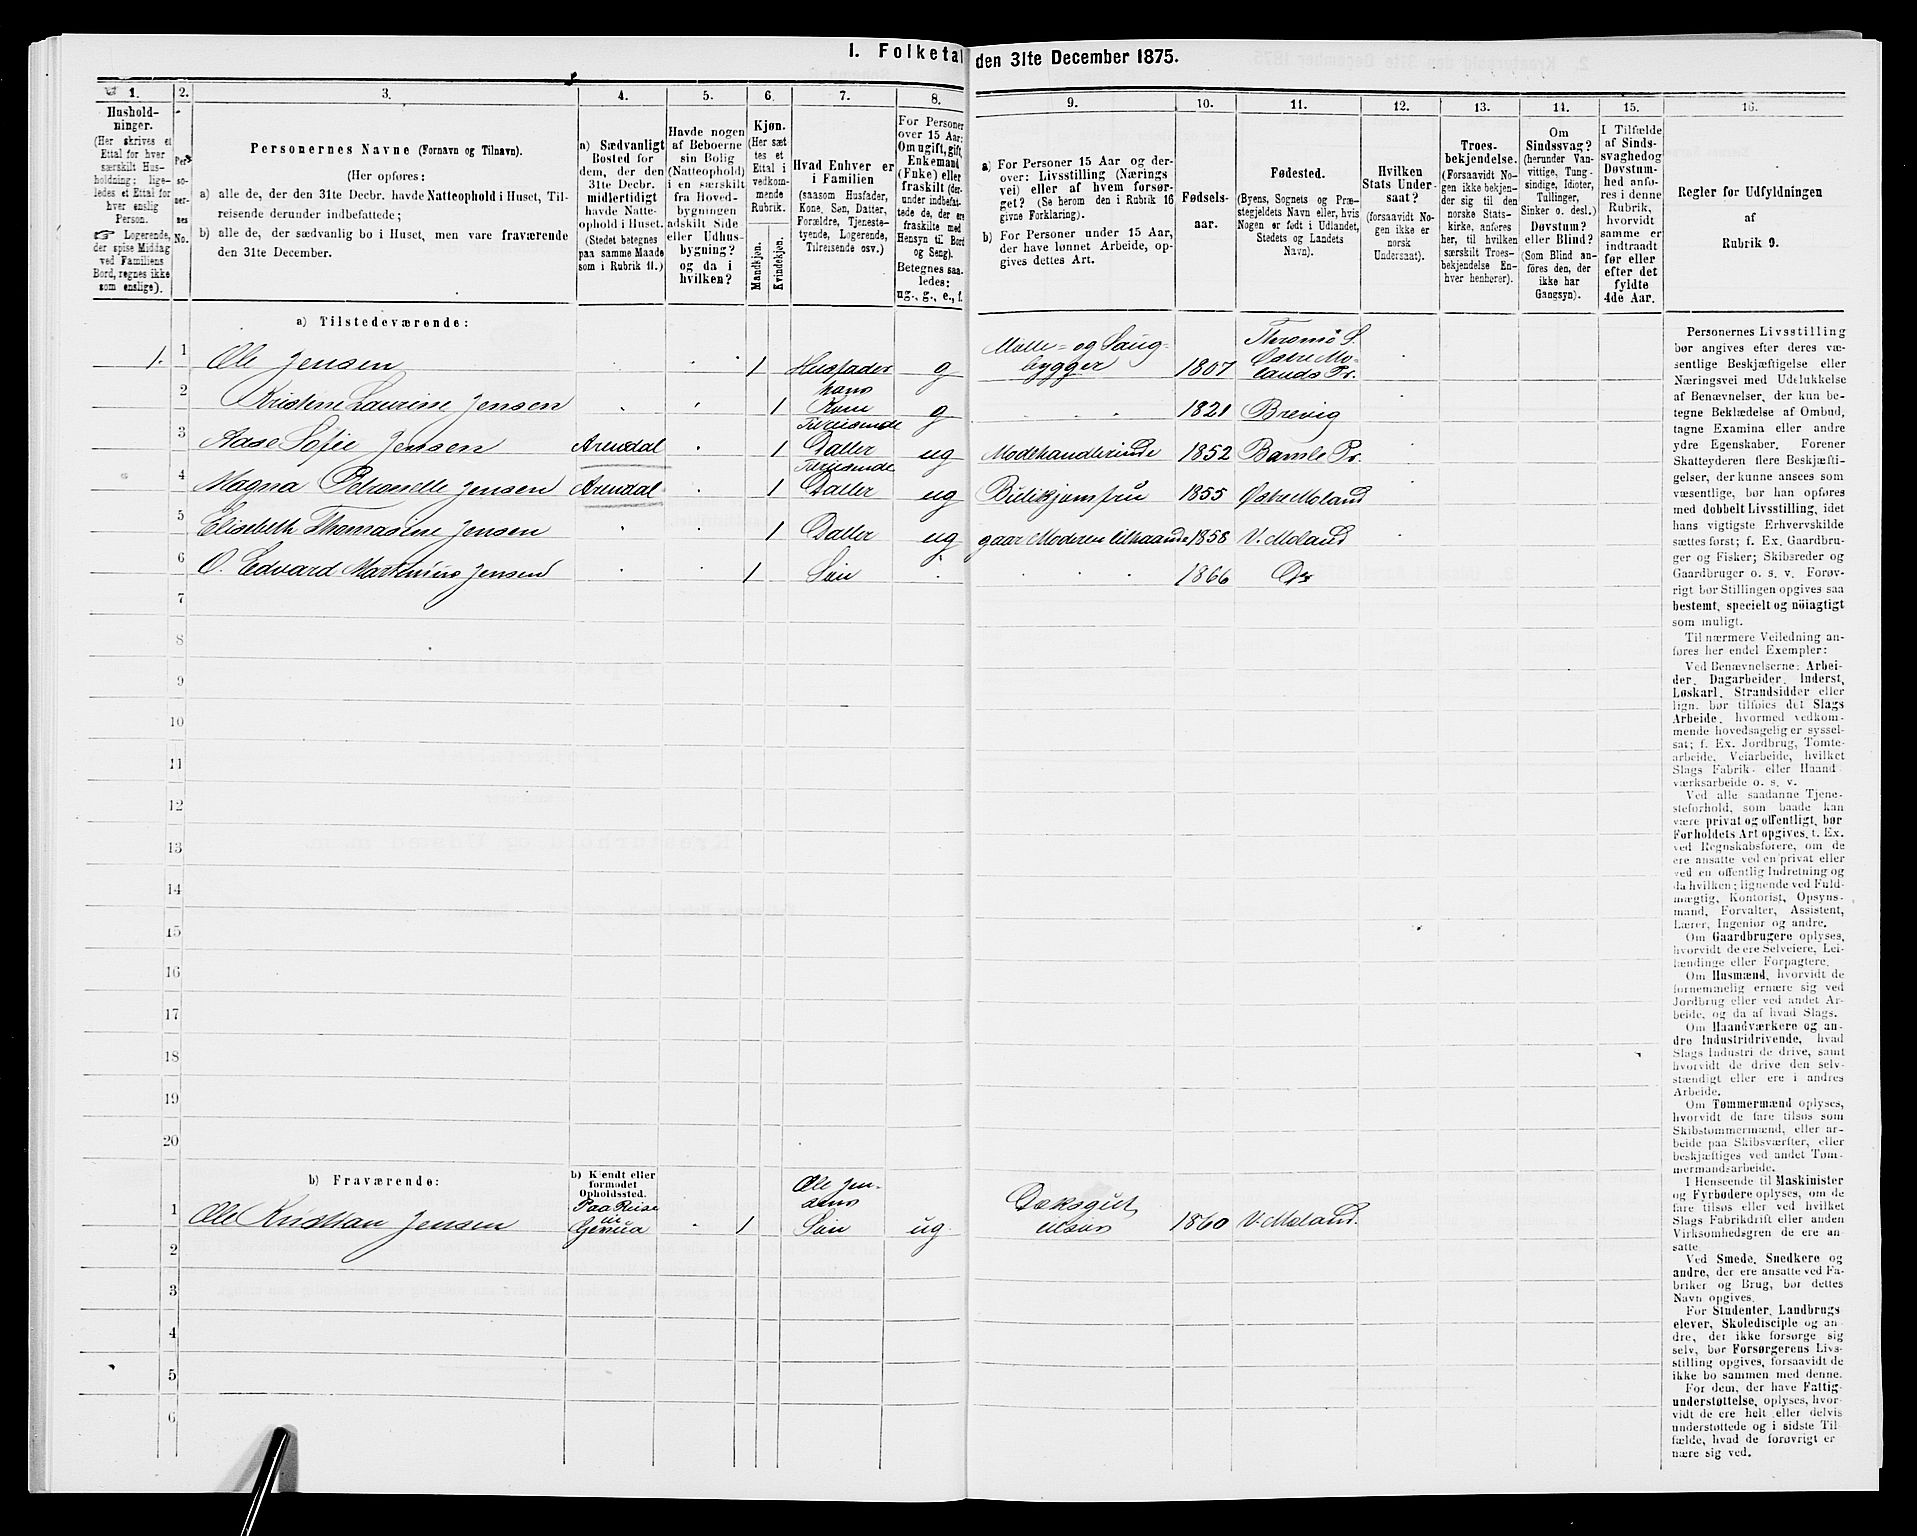 1. Folketal den 31te December 1875.
1.
Hushold-
ninger.
(Her skrives et
Ettal for hver
særskilt Hus-
holdning; lige-
ledes et Ettal for
hver enslig
Person.
☞ Logerende,
der spise Middag
ved Familiens
Bord, regnes ikke
som enslige).
2.
Per-
so-
ner-
nes
No.
3.
Personernes Navne (Fornavn og Tilnavn).
(Her opføres:
a) alle de, der den 31te Decbr. havde Natteophold i Huset, Til-
reisende derunder indbefattede;
b) alle de, der sædvanlig bo i Huset, men vare fraværende
den 31te December.
4.
a) Sædvanligt
Bosted for
dem, der den
31te Decbr.
midlertidigt
havde Natte-
ophold i Huset.
(Stedet betegnes
paa samme Maade
som i Rubrik 11.)
5.
Havde nogen
af Beboerne
sin Bolig
(Natteophold)
i en særskilt
fra Hoved-
bygningen
adskilt Side
eller Udhus-
bygning?
og da i
hvilken?
6.
Kjøn.
(Her sæt
tes et
Ettal i
vedkom-
mende
Rubrik.
Mandkjøn.
Kvindekjøn.
7.
Hvad Enhver er
i Familien
(saasom Husfader,
Kone, Søn, Datter,
Forældre, Tjeneste-
tyende, Logerende,
Tilreisende osv.)
8.
For Personer
over 15 Aar:
Om ugift, gift,
Enkemand
(Enke) eller
fraskilt (der-
under indbefat-
tede de, der ere
fraskilte med
Hensyn til Bord
og Seng).
Betegnes saa-
ledes:
ug., g., e., f.
9.
a) For Personer 15 Aar og der-
over: Livsstilling (Nærings
vei) eller af hvem forsør-
get? (Se herom den i Rubrik 16
givne Forklaring).
b) For Personer under 15 Aar,
der have lønnet Arbeide, op-
gives dettes Art.
10.
Fødsels-
aar.
11.
Fødested.
(Byens, Sognets og Præ-
stegjeldets Navn eller, hvis
Nogen er født i Udlandet,
Stedets og Landets
Navn).
12.
Hvilken
Stats Under-
saat?
(forsaavidt No-
gen ikke er
norsk
Undersaat).
13.
Troes-
bekjendelse.
(Forsaavidt No-
gen ikke bekjen-
der sig til den
norske Stats-
kirke, anføres
her, til hvilken
særskilt Troes-
bekjendelse En-
hver henhører).
14.
Om
Sindssvag?
(herunder Van-
vittige, Tung-
sindige, Idioter,
Tullinger,
Sinker o. desl.)
Døvstum?
eller Blind?
(Som Blind an-
føres den, der
ikke har
Gangsyn).
15.
I Tilfælde
af Sinds-
svaghed og
Døvstum-
hed anfø-
res i denne
Rubrik,
hvorvidt
samme er
indtraadt
før eller
efter det
fyldte
4de Aar.
16.
Regler for Udfyldningen
af
Rubrik 9.
a) Tilstedeværende:
1. 1 Ole Jensen 1 Husfader g Mølle- og Saug-
bygger 1807 Thromø S.
Østre Mo-
lands Pr.
2 Kristene Laurine Jensen 1 hans
Kone g 1821 Brevig
3 Aase Sofie Jensen Arendal 1 Tilreisende
Datter ug Modehandlerinde 1852 Bamle Pr.
4 Magna Petronelle Jensen Arendal 1 Tilreisende
Datter ug Butikjomfru 1855 Østre Moland
5 Elisebeth Thomasine Jensen 1 Datter ug gaar Moderen tilhaande 1858 V. Moland
6 O. Edvard Martinius Jensen 1 Søn 1866 Do
7
8
9
10
11
12
13
14
15
16
17
18
19
20
b) Fraværende:
b) Kjendt eller
formodet
Opholdssted.
1 Ole Kristian Jensen Paa Reise
til
Genua 1 Ole Jen-
sens
Søn ug Dæksgut
1860 V. Moland.
2
3
4
5
6
Personernes Livsstilling
bør angives efter deres væ-
sentlige Beskjæftigelse eller
Næringsvei med Udelukkelse
af Benævnelser, der kun be-
tegne Beklædelse af Ombud,
tagne Examina eller andre
ydre Egenskaber. Forener
Skatteyderen flere Beskjæfti-
gelser, der kunne ansees som
væsentlige, bør han opføres
med dobbelt Livsstilling, idet
hans vigtigste Erhvervskilde
sættes først; f. Ex. Gaardbru-
ger og Fisker; Skibsreder og
Gaardbruger o. s. v. Forøv-
rigt bør Stillingen opgives saa
bestemt, specielt og nöiagtigt
som muligt.
Til nærmere Veiledning an-
føres her endel Exempler:
Ved Benævnelserne: Arbei-
der, Dagarbeider, Inderst,
Løskarl, Strandsidder eller
lign. bør tilføies det Slags
Arbeide, hvormed vedkom-
mende hovedsagelig er syssel-
sat; f. Ex. Jordbrug, Tomte-
arbeide, Veiarbeide, hvilket
Slags Fabrik- eller Haand-
værksarbeide o. s. v.
Ved alle saadanne Tjene-
steforhold, som baade kan
være privat og offentligt, bør
Forholdets Art opgives, t. Ex.
ved Regnskabsførere, om de
ere ansatte ved en privat eller
ved en offentlig Indretning og
da hvilken; lignende ved Fuld-
mægtig, Kontorist, Opsyns-
mand, Forvalter, Assistent,
Lærer, Ingeniør og andre.
Om Gaardbrugere oplyses,
hvorvidt de ere Selveiere, Lei-
lændinge eller Forpagtere.
Om Husmænd, hvorvidt de
fornemmelig ernære sig ved
Jordbrug eller ved andet Ar-
beide, og da af hvad Slags.
Om Haandværkere og an-
dre Industridrivende, hvad
Slags Industri de drive, samt
hvorvidt de drive den selv-
stændigt eller ere i andres
Arbeide.
Om Tømmermænd oplyses,
hvorvidt de fare tilsøs som
Skibstømmermænd, eller ar-
beide paa Skibsværfter, eller
beskjæftiges ved andet Tøm-
mermandsarbeide.
I Henseende til Maskinister
og Fyrbödere oplyses, om de
fare tilsøs eller ved hvilket
Slags Fabrikdrift eller anden
Virksomhedsgren de ere an-
satte.
Ved Smede, Snedkere og
andre, der ere ansatte ved Fa-
briker og Brug, bør dettes
Navn opgives.
For Studenter, Landbrugs
elever, Skoledisciple og an-
dre, der ikke forsørge sig
selv, bør Forsørgerens Livs-
stilling opgives, forsaavidt de
ikke bo sammen med denne.
For dem, der have Fattig-
understøttelse, oplyses, hvor-
vidt de ere helt eller delvis
understøttede og i sidste Til-
fælde, hvad de forøvrigt er
nære sig ved.